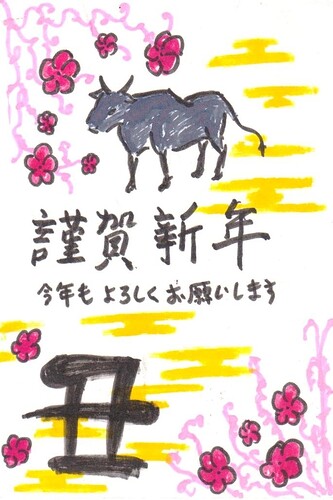 謹賀新年
今年もよろしくお願いします
丑